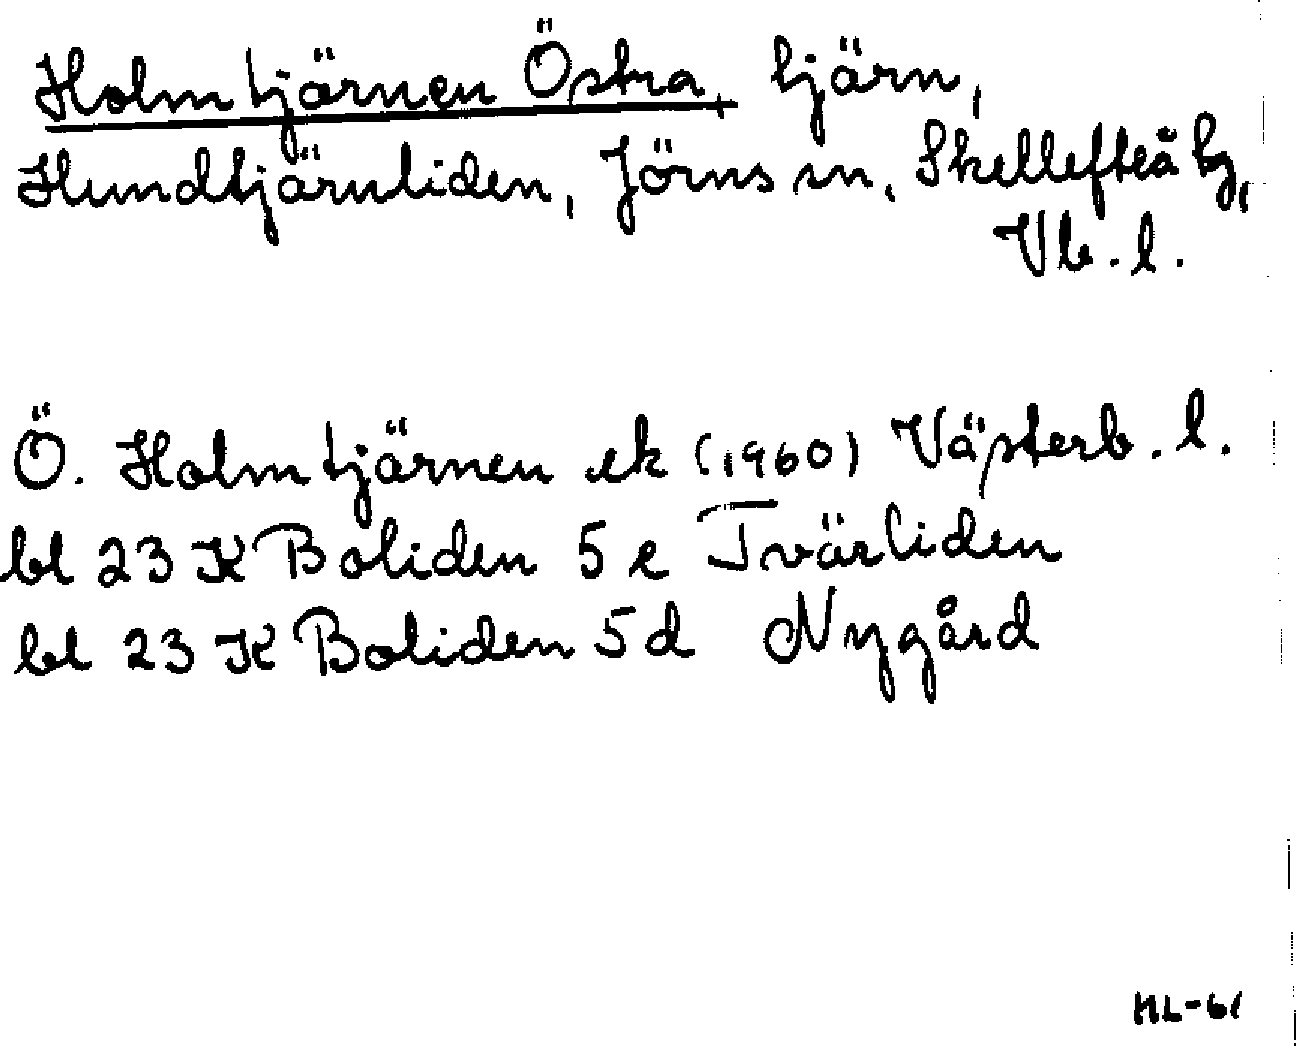 Holmtjärnen Östra, tjärn,
Hundtjärnliden, Jörns sn, Skellefteå tg,
Vb. l.
Ö. Holmtjärnen ek (1960) Västerb. l.
bl 23 K Boliden 5e Tvärliden
bl 23 K Boliden 5d Nygård
ML-61